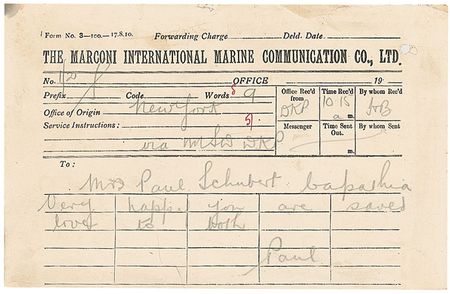 Form No. 3—100.—17.8.10. Forwarding Charge Deld. Date
THE MARCONI INTERNATIONAL MARINE COMMUNICATION CO., LTD.
No. OFFICE 19
Prefix Code Words 9
Office of Origin New York
Service Instructions: via MSD DKP
Office Rec'd from Time Rec'd By whom Rec'd
DKP 10 15 a m.
Messenger Time Sent Out. By whom Sent
m.
To:
Mrs Paul Schubert Carpathia
Very happy you are saved
love to both
Paul